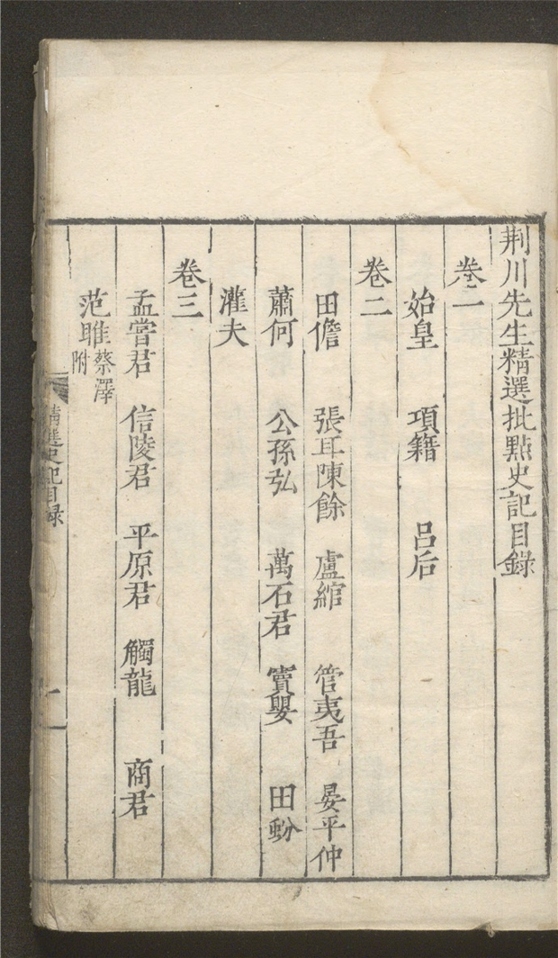 荆川先生精選批點史記目錄
卷一
始皇 項籍 呂后
卷二
田儋 張耳陳餘 盧綰 管夷吾 晏平仲
蕭何 公孫弘 萬石君 竇嬰 田蚡
灌夫
卷三
孟嘗君 信陵君 平原君 觸龍 商君
范雎蔡澤附
精選史記目錄 一